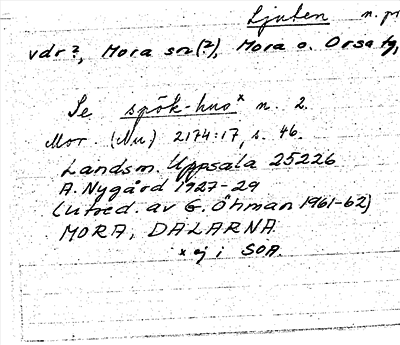 Ljuten n. pr
vdr?, Mora sn(?), Mora o. Orsa tg,
Se spök-hus x n. 2.
Mor. (Nu) 2174:17, s. 46.
Landsm. Uppsala 25226
A. Nygård 1927-29
(utred. av G. Öhman 1961-62)
MORA, DALARNA.
x ej i SOA.